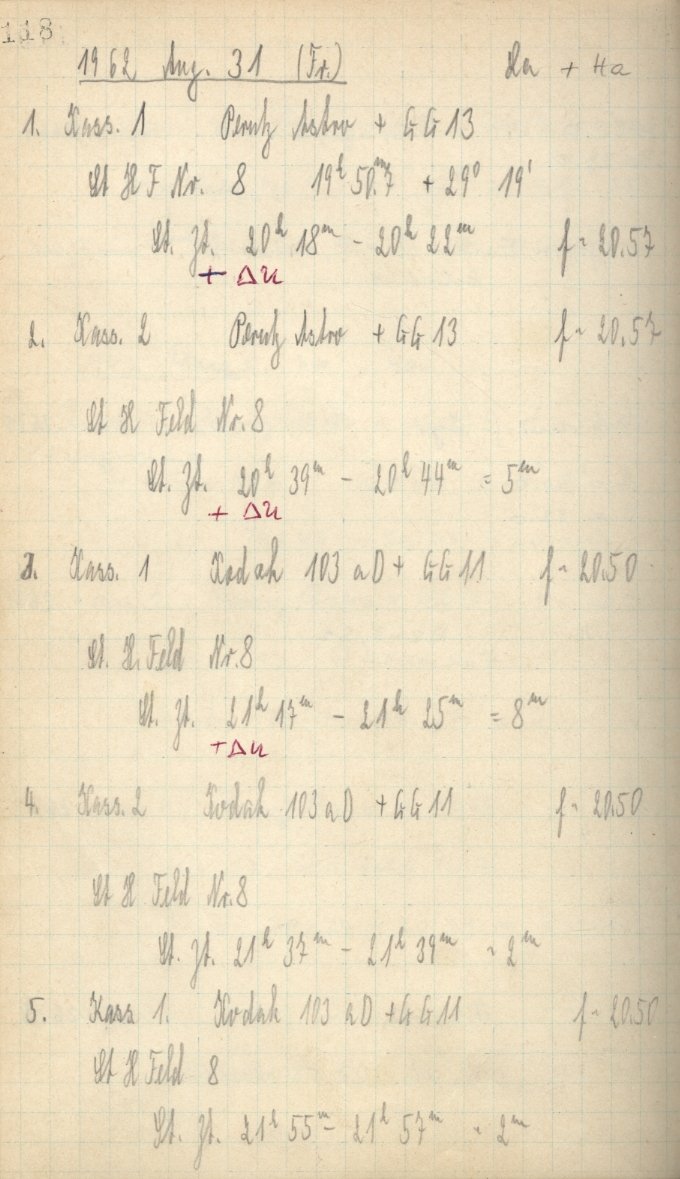 118
1962 Aug. 31 (Fr.) + Ha
1. Kass. 1 Perutz Astro + GG 13
St H F Nr. 8 19h 50.m7 + 29° 19'
St. Zt. 20h 18m - 20h 22m f = 20.57
+ Δu
2. Kass. 2 Perutz Astro + GG 13 f = 20.57
St H Feld Nr. 8
St. Zt. 20h 39m - 20h 44m = 5m
+ Δu
3. Kass. 1 Kodak 103 a D + GG 11 f = 20.50
St. H. Feld Nr. 8
St. Zt. 21h 17m - 21h 25m = 8m
+ Δu
4. Kass. 2 Kodak 103 a D + GG 11 f = 20.50
St H Feld Nr. 8
St. Zt. 21h 37m - 21h 39m = 2m
5. Kass 1. Kodak 103 a D + GG 11 f = 20.50
St H Feld 8
St. Zt. 21h 55m - 21h 57m = 2m